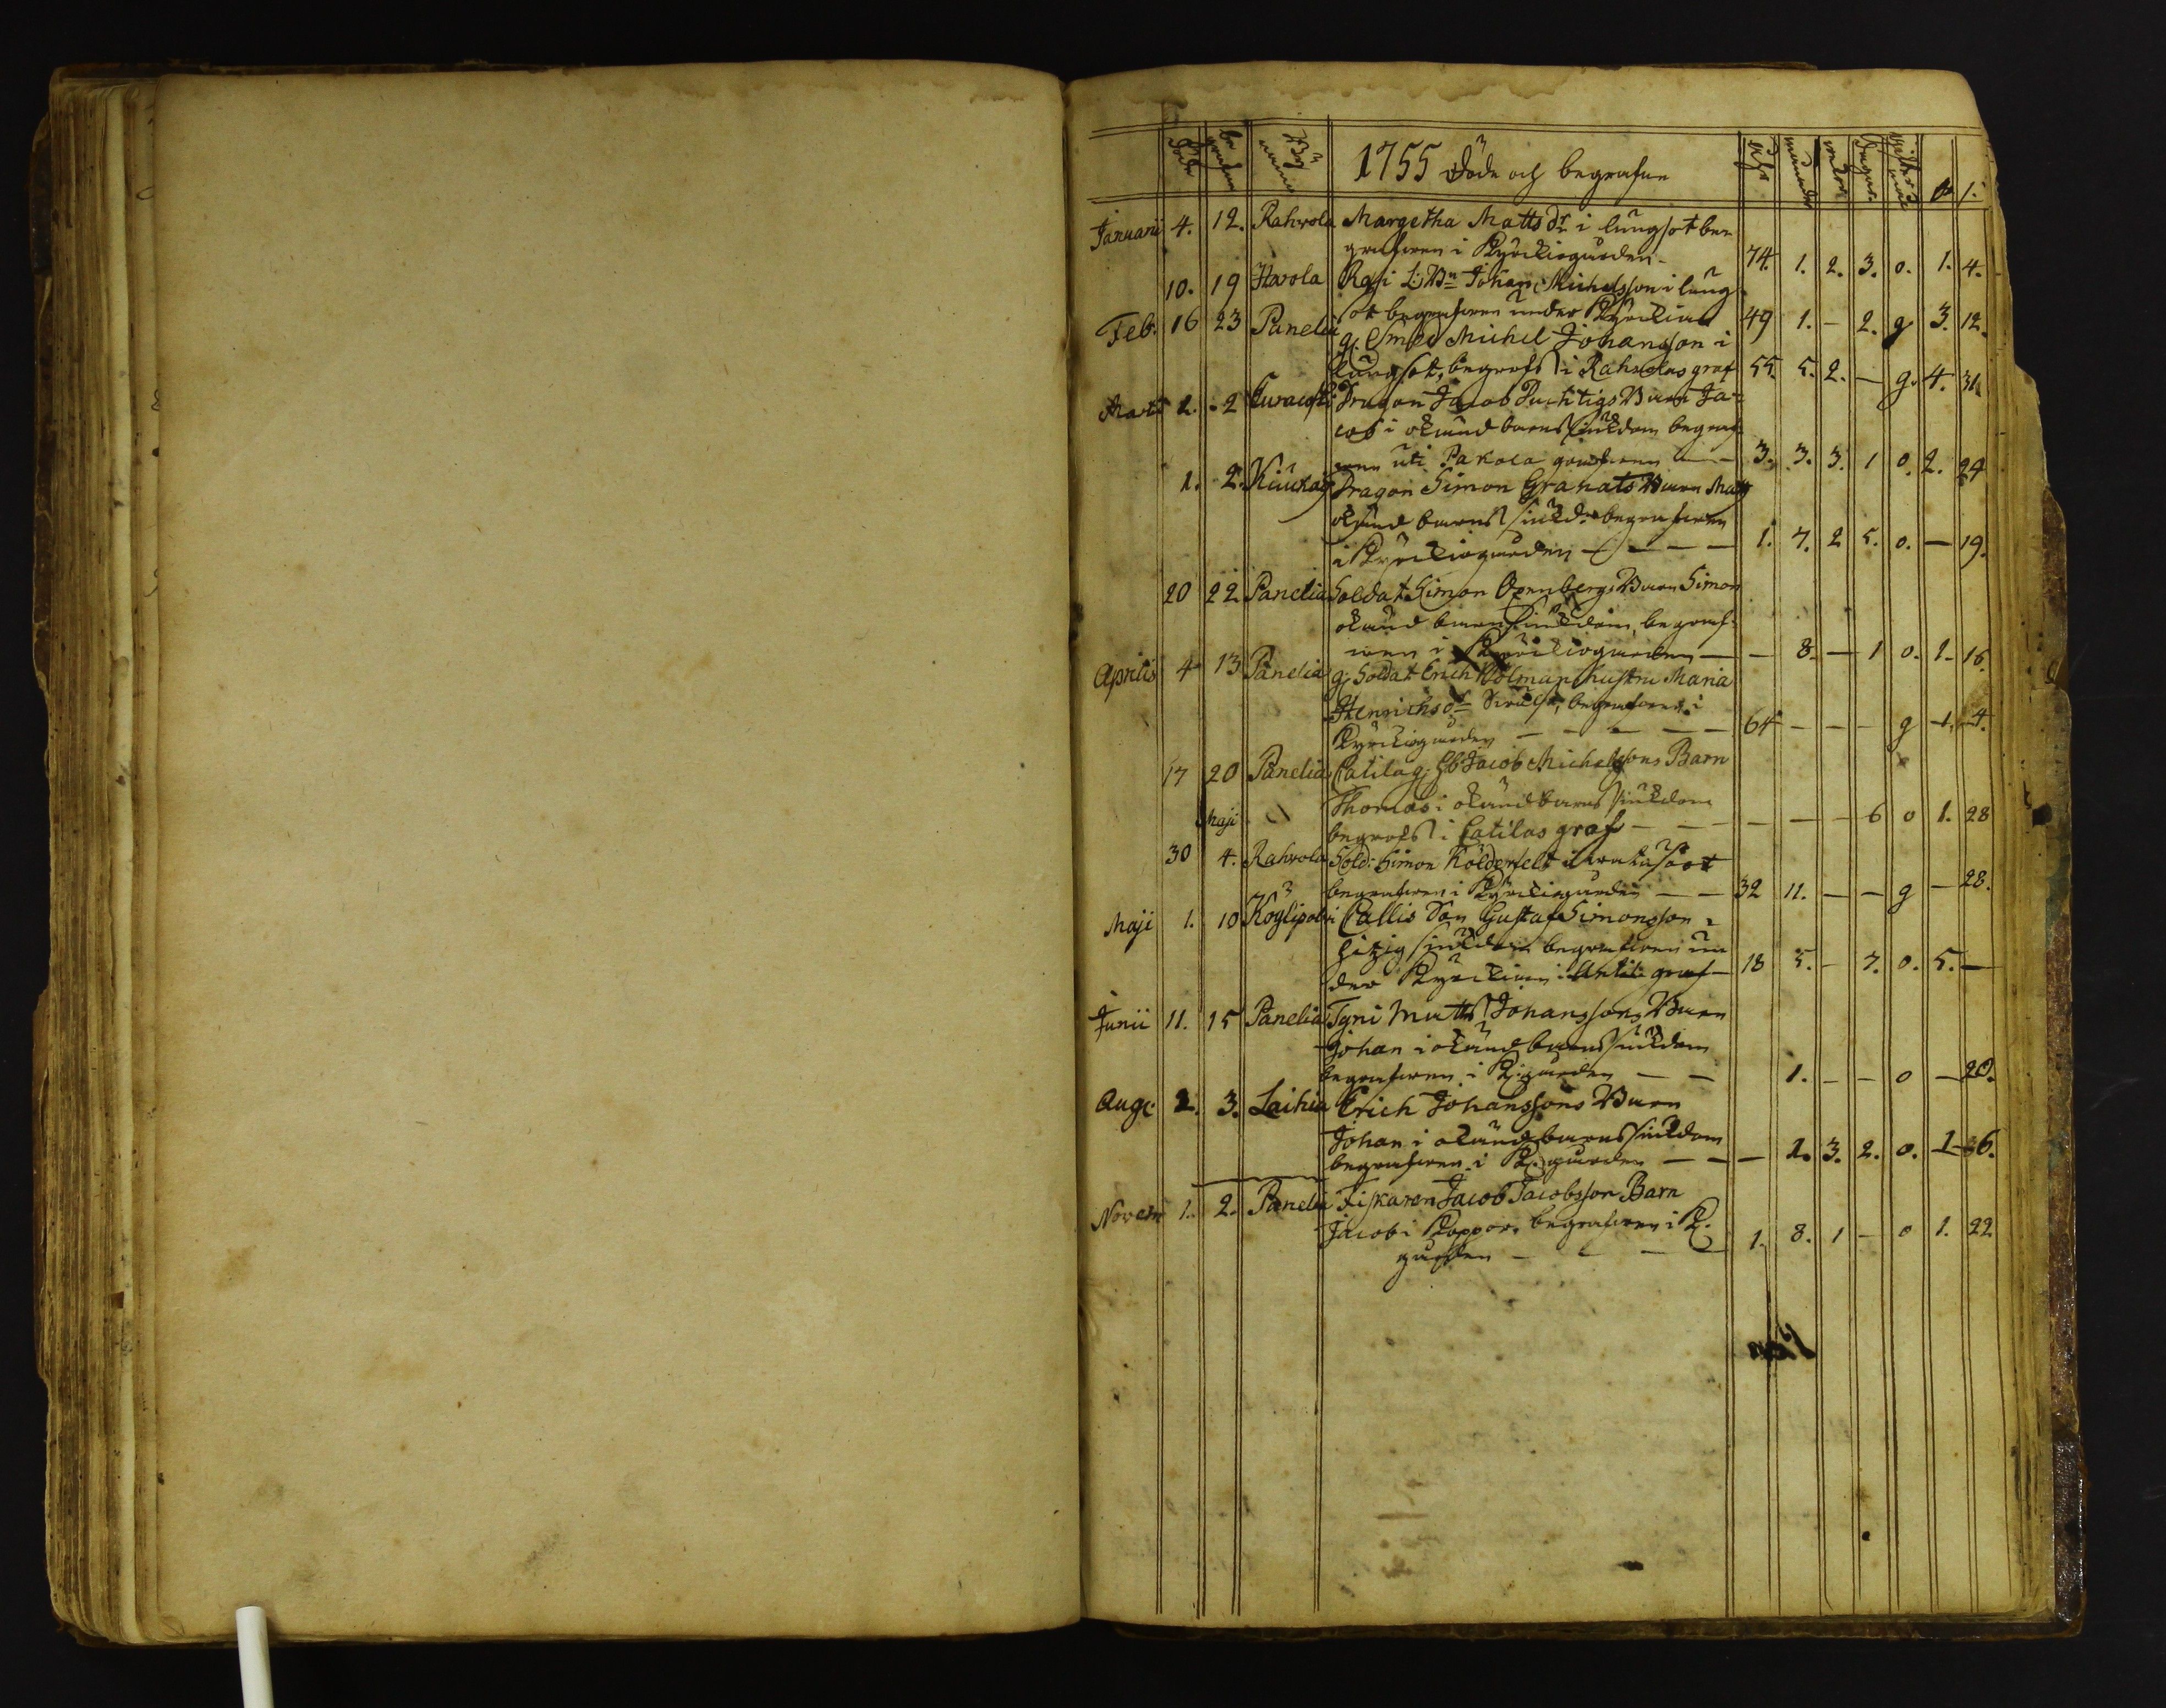 döde be grafne By namn 1755 Döde och begrafne åhr månader vekor dagar gifter ogift 1.
Januarii 4. 12. Rahvola Margetha Matts dr i lungsot be
grafven i Kyrckiogården 74. 1. 2. 3. 0. 1. 4.
10. 19 Harola Johan Michelsson i lung
sot begrafven under Kyrckian 49 1. - 2. g 3. 12.
Feb. 16 23 Panelia g. Michel Johansson i
lungsot, begrofs i Rahvolas graf 55. 5. 2. - g. 4. 31.
Marti 1. 2 Dragon Jacob Puchtigs Barn Ja-
cob i okänd barnssiukdom begraf-
ven uti Pakola grafven 3. 3. 3. 1 0. 2. 24
1. 2. Kiukais Dragon Simon Granats Barn Matts
okänd barnssiukd: begrafven
i Kyrckiogården 1. 7. 2 5. 0. - 19.
20 22 Panelia Soldat Simon Oxenbergs Barn Simon
okänd barnssiukdom, begraf-
ven i Kyrckiogården - 8. - 1 0. 1. 16.
Aprilis 4 13 Panelia g. Soldat Erich Holmans hustru Maria
Henrichs dr begrafven i
Kyrckiogården 64 - - - g 1. 4.
17 20 Panelia Catila g. Jacob Michelssons Barn
Maji Thomas i okänd barnssiukdom
begrofs i Catilas graf - - - 6 0 1. 28
30 4. Rahvola Sold: Simon
begrafven i Kyrckiogården 32 11. - - g - 28.
Maji 1. 10 Köylipolvi Callis Son Gustaf Simonsson i
hitzig siukdom begrafven un
der Kyrckian i graf 18 5. - 7. 0. 5. -
Junii 11. 15 Panelia Tyni Matts Johanssons Barn
Johan i okänd barnssiukdom
begrafven i K:gården 1. - - 0 - 20.
Aug: 2. 3. Laihia Erich Johanssons Barn
Johan i okänd barnssiukdom
begrafven i K:gården - 1. 3. 2. 0. 1 36.
Novem 1. 2. Panelia Fiskaren Jacob Jacobsson Barn
Jacob i Koppor. begrafven i K.
gården 1. 8. 1 - 0 1. 22